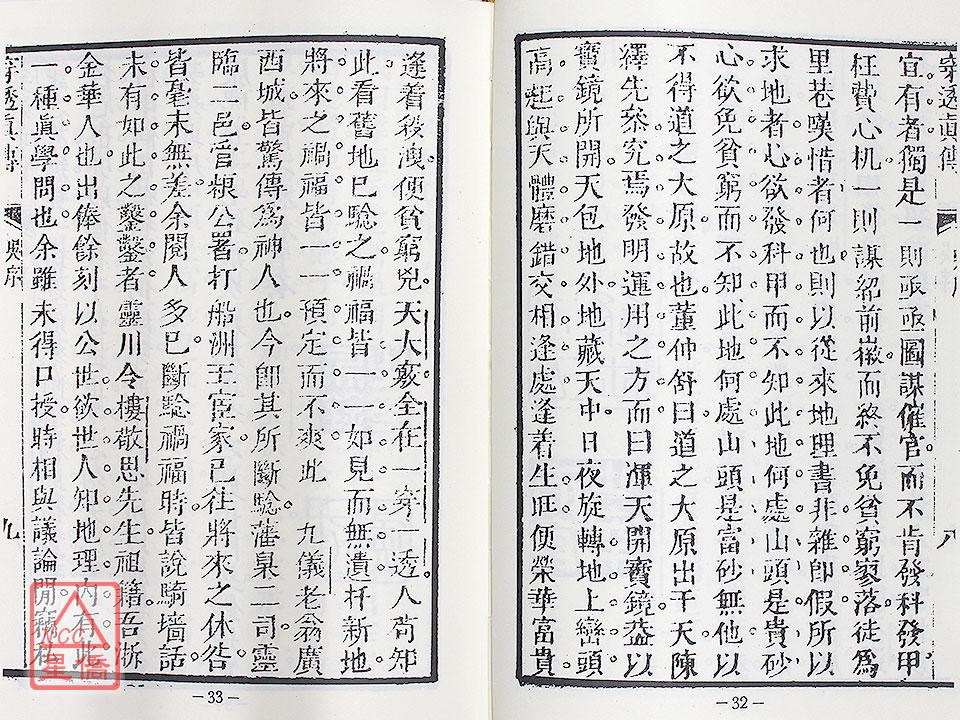 穿透真傳
八
宜有者獨是一則亟亟圖謀催官而不肯發科發甲
枉費心机一則謀紹前徽而終不免貧窮家落徒為
里巷嘆惜者何也則以從來地理書非雜即假所以
求地者心欲發科甲而不知此地何處山頭是貴砂
心欲免貧窮而不知此地何處山頭是富砂無他以
不得道之大原故也董仲舒曰道之大原出于天陳
繹先叅究焉發明運用之方而曰渾天開寶鏡葢以
寶鏡所開天包地外地藏天中日夜旋轉地上巒頭
高起與天體磨錯交相逢處逢着生旺便榮華富貴
—32—
逢着殺洩便貧窮兇天大竅全在一穿一透人苟知
此看舊地已驗之禍福皆一一如見而無遺扞新地
將來之禍福皆一一預定而不爽此 九儀老翁廣
西城皆驚傳為神人也今卽其所斷驗藩臬二司靈
臨二邑官糧公署打船洲王宦家已往將來之休咎
皆毫末無差余閱人多已斷驗禍福時皆說騎墻話
未有如此之鑿鑿者靈川令樓敬思先生祖籍吾浙
金華人也出俸餘刻以公世欲世人知地理內有此
一種眞學問也余雖未得口授時相與議論閒竊私
穿透眞傳
吳序
九
—33—
NCC
星僑